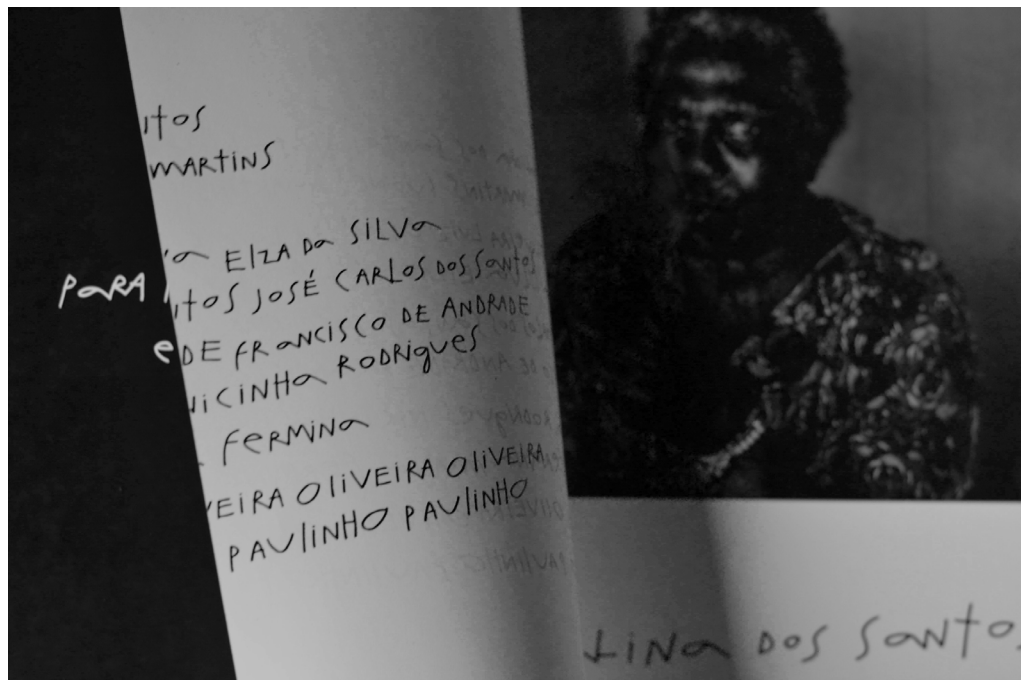 itos
MARTINS
a ELZA DA SILVA
PARA
itos JOSÉ CARLOS DOS SANTOS
e DE FRANCISCO DE ANDRADE
NICINHA RODRIGUES
FERMINA
VEIRA OLIVEIRA OLIVEIRA
PAULINHO PAULINHO
tiNA DOS SANTOS